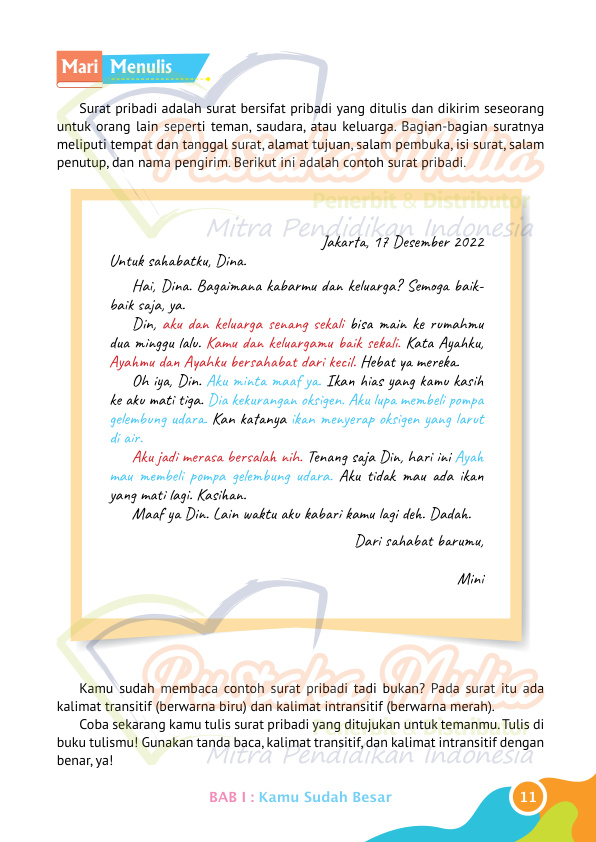 Mari Menulis
Surat pribadi adalah surat bersifat pribadi yang ditulis dan dikirim seseorang
untuk orang lain seperti teman, saudara, atau keluarga. Bagian-bagian suratnya
meliputi tempat dan tanggal surat, alamat tujuan, salam pembuka, isi surat, salam
penutup, dan nama pengirim. Berikut ini adalah contoh surat pribadi.
Pustaka Mulia
Penerbit & Distributor
Mitra Pendidikan Indonesia
Jakarta, 17 Desember 2022
Untuk sahabatku, Dina.
Hai, Dina. Bagaimana kabarmu dan keluarga? Semoga baik-
baik saja, ya.
Din, aku dan keluarga senang sekali bisa main ke rumahmu
dua minggu lalu. Kamu dan keluargamu baik sekali. Kata Ayahku,
Ayahmu dan Ayahku bersahabat dari kecil. Hebat ya mereka.
Oh iya, Din. Aku minta maaf ya. Ikan hias yang kamu kasih
ke aku mati tiga. Dia kekurangan oksigen. Aku lupa membeli pompa
gelembung udara. Kan katanya ikan menyerap oksigen yang larut
di air.
Aku jadi merasa bersalah nih. Tenang saja Din, hari ini Ayah
mau membeli pompa gelembung udara. Aku tidak mau ada ikan
yang mati lagi. Kasihan.
Maaf ya Din. Lain waktu aku kabari kamu lagi deh. Dadah.
Dari sahabat barumu,
Mini
Pustaka Mulia
Kamu sudah membaca contoh surat pribadi tadi bukan? Pada surat itu ada
kalimat transitif (berwarna biru) dan kalimat intransitif (berwarna merah).
Coba sekarang kamu tulis surat pribadi yang ditujukan untuk temanmu. Tulis di
buku tulismu! Gunakan tanda baca, kalimat transitif, dan kalimat intransitif dengan
benar, ya!
Penerbit & Distributor
Mitra Pendidikan Indonesia
BAB I : Kamu Sudah Besar
11